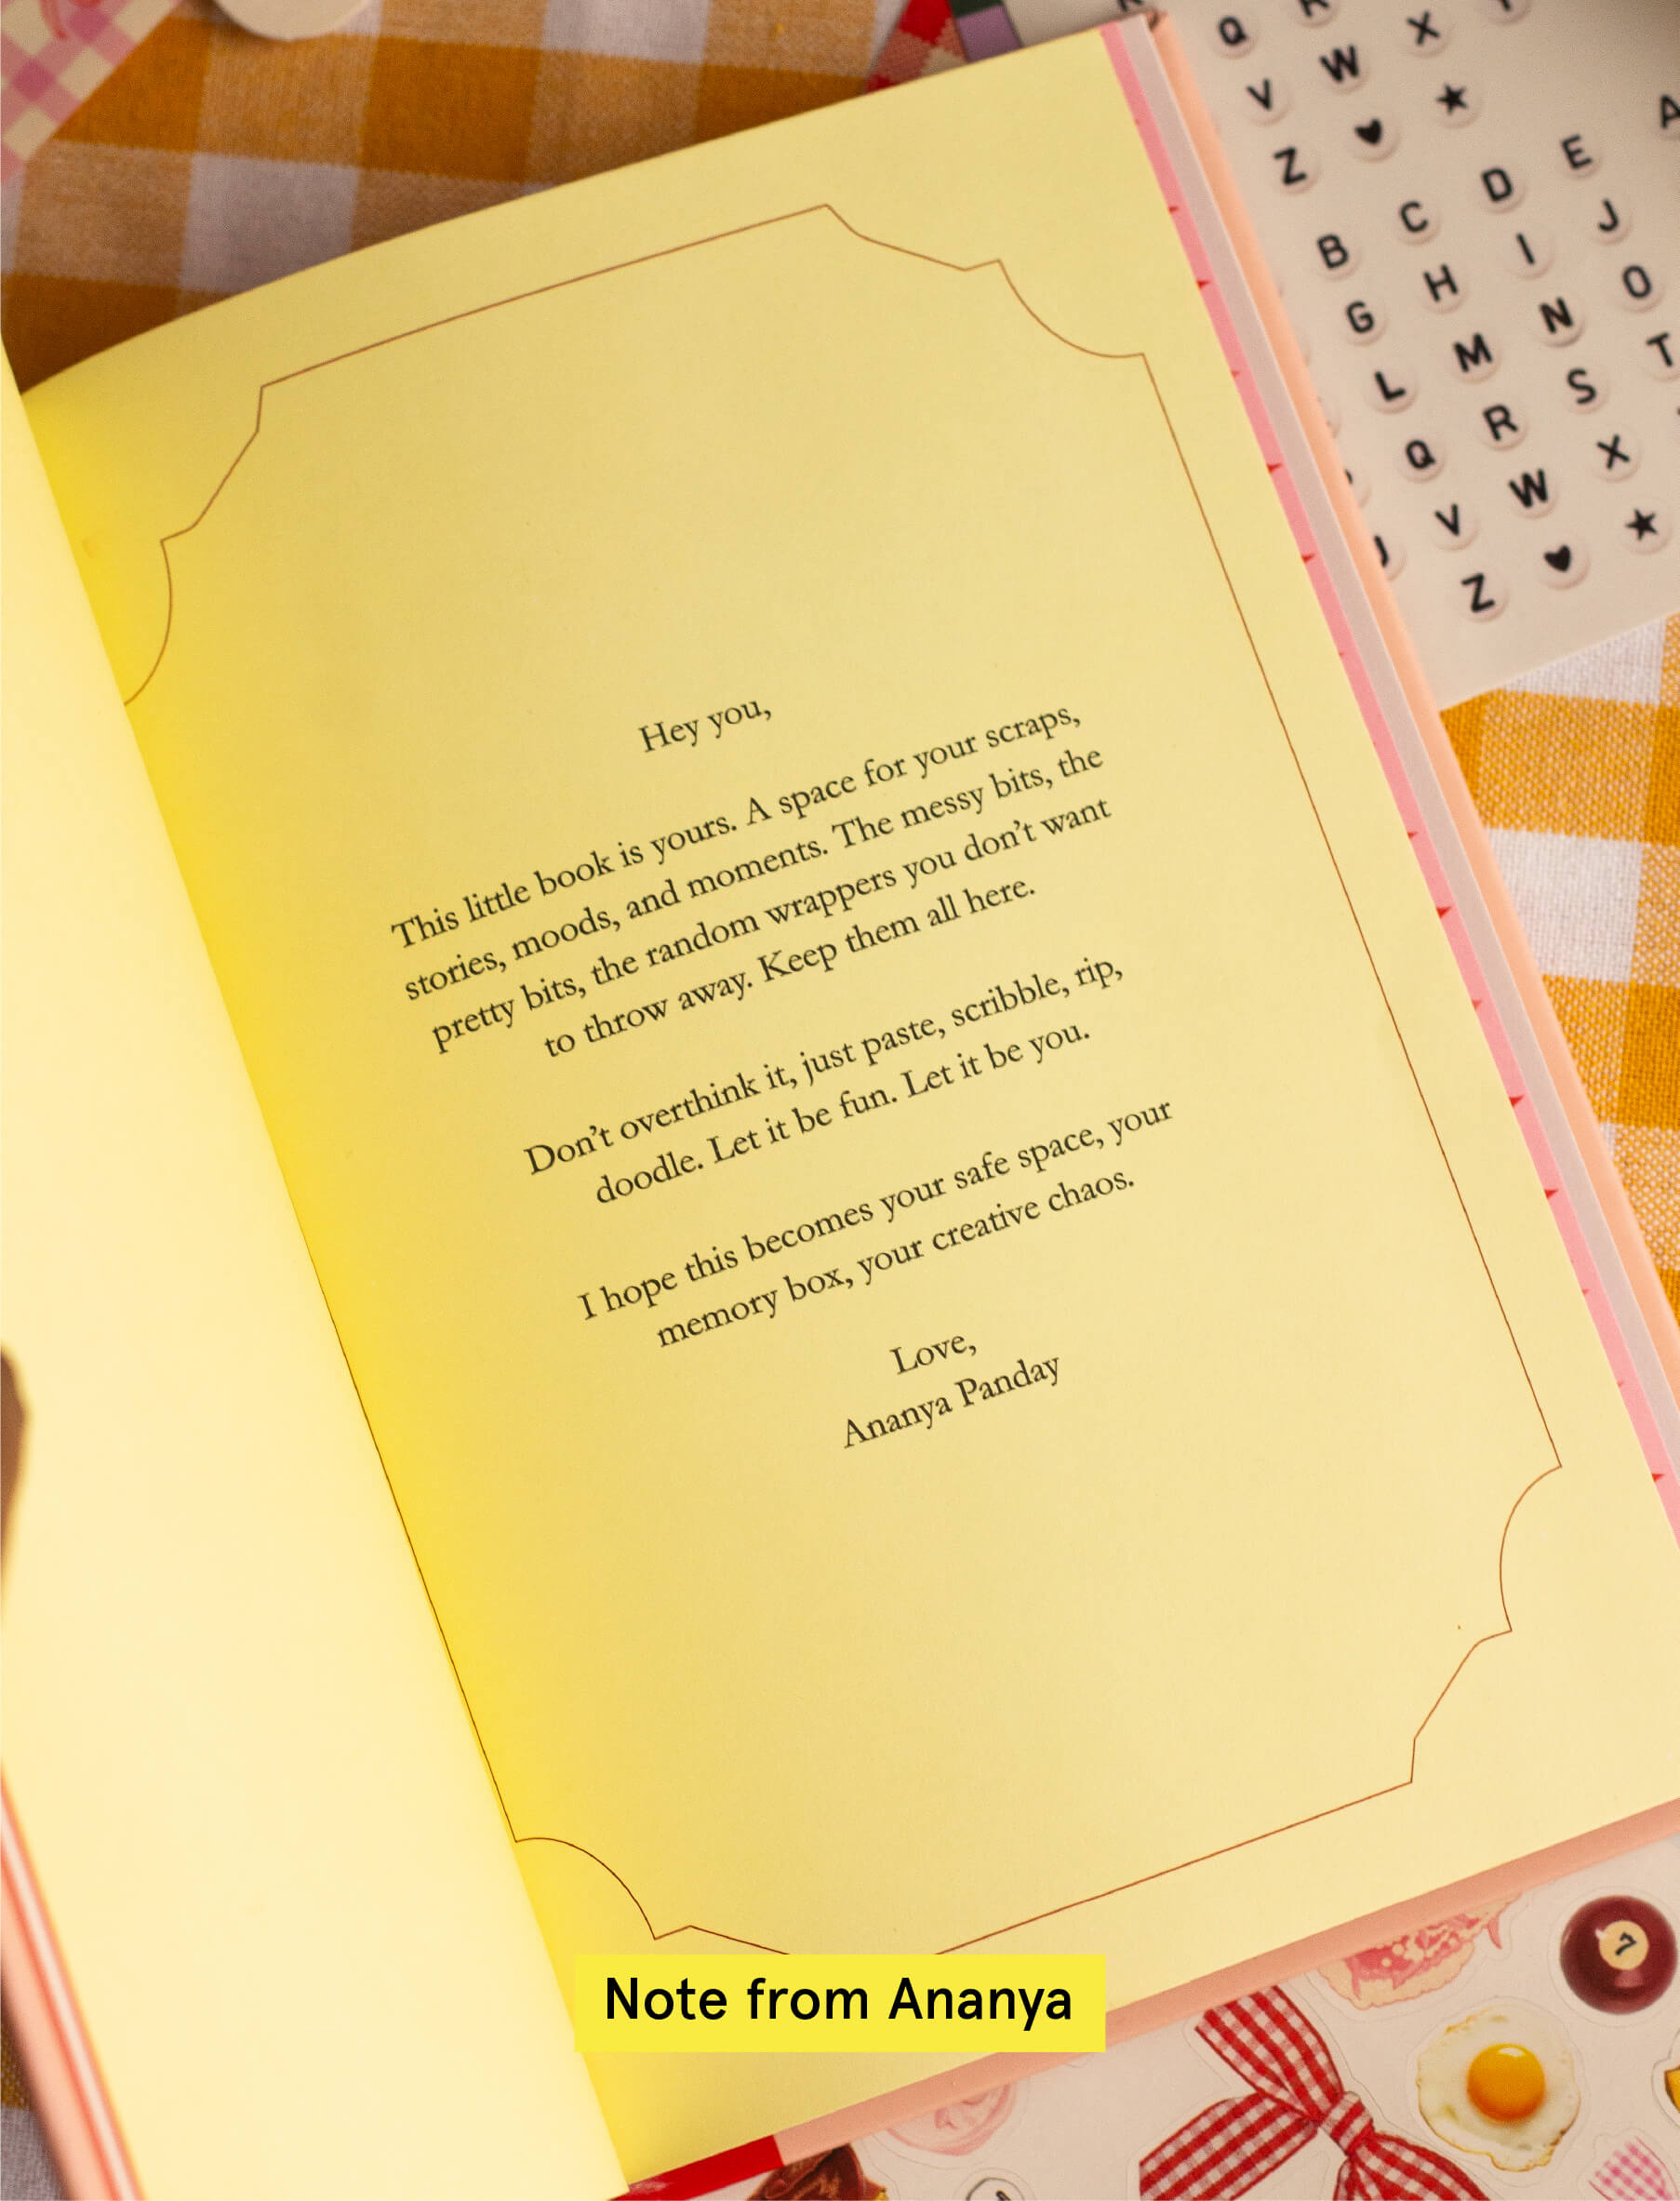 Q R X Y
V W ★
Z ♥
A
B C D E
G H I J
L M N O
Q R S T
V W X
Z ♥ ★
Hey you,
This little book is yours. A space for your scraps,
stories, moods, and moments. The messy bits, the
pretty bits, the random wrappers you don't want
to throw away. Keep them all here.
Don't overthink it, just paste, scribble, rip,
doodle. Let it be fun. Let it be you.
I hope this becomes your safe space, your
memory box, your creative chaos.
Love,
Ananya Panday
Note from Ananya
7